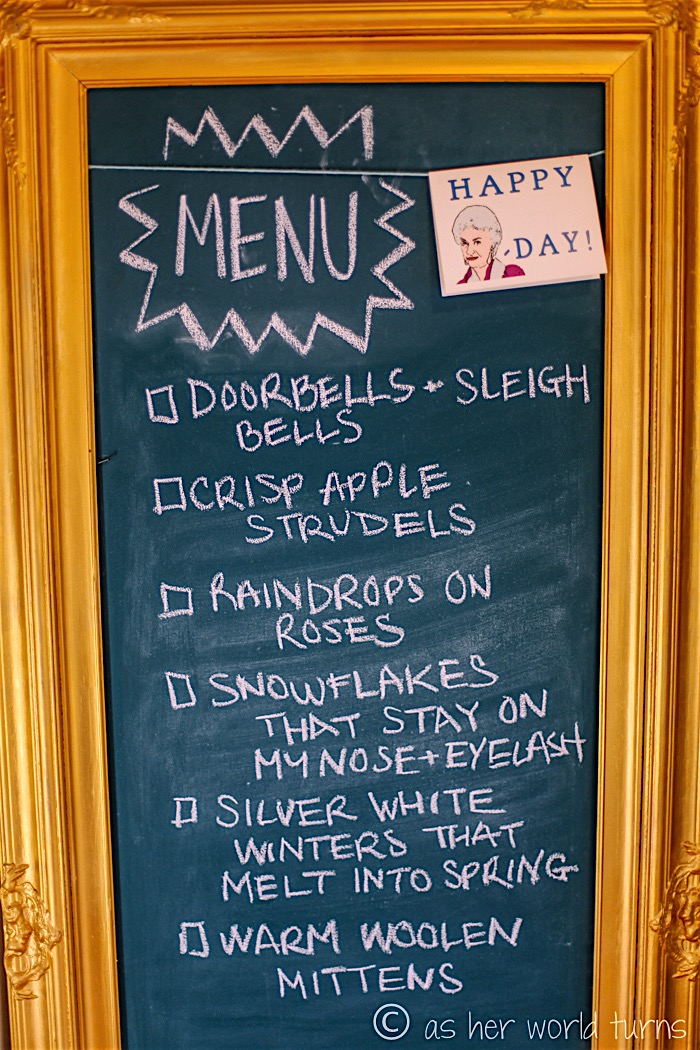 MENU
HAPPY
-DAY!
DOORBELLS + SLEIGH
BELLS
CRISP APPLE
STRUDELS
RAINDROPS ON
ROSES
SNOWFLAKES
THAT STAY ON
MY NOSE + EYELASH
SILVER WHITE
WINTERS THAT
MELT INTO SPRING
WARM WOOLEN
MITTENS
© as her world turns